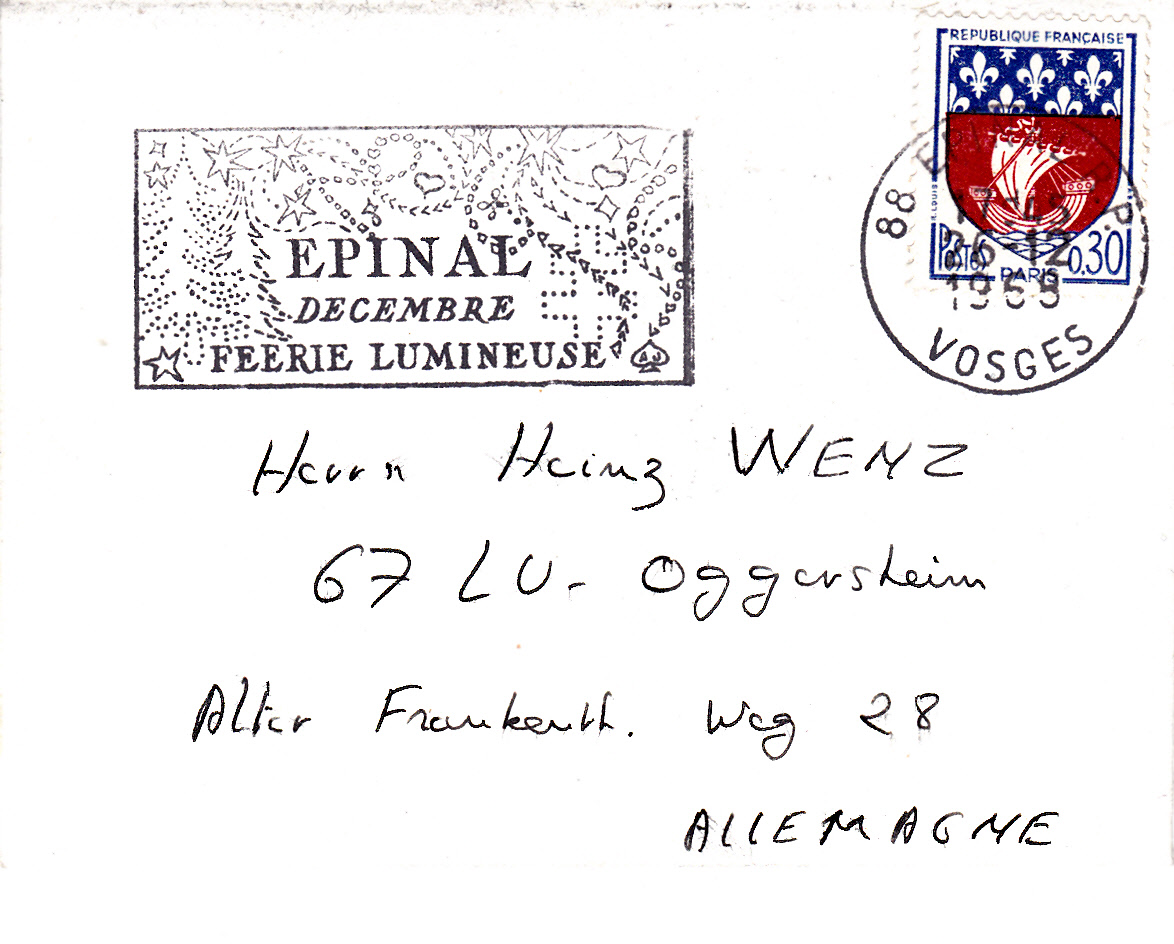 REPUBLIQUE FRANÇAISE
POSTES
0,30
PARIS
88
R.P.
17H45
12
VOSGES
EPINAL
DECEMBRE
FEERIE LUMINEUSE
Herrn Heinz WENZ
67 LU- Oggersheim
Alter Frankenth. Weg 28
ALLEMAGNE